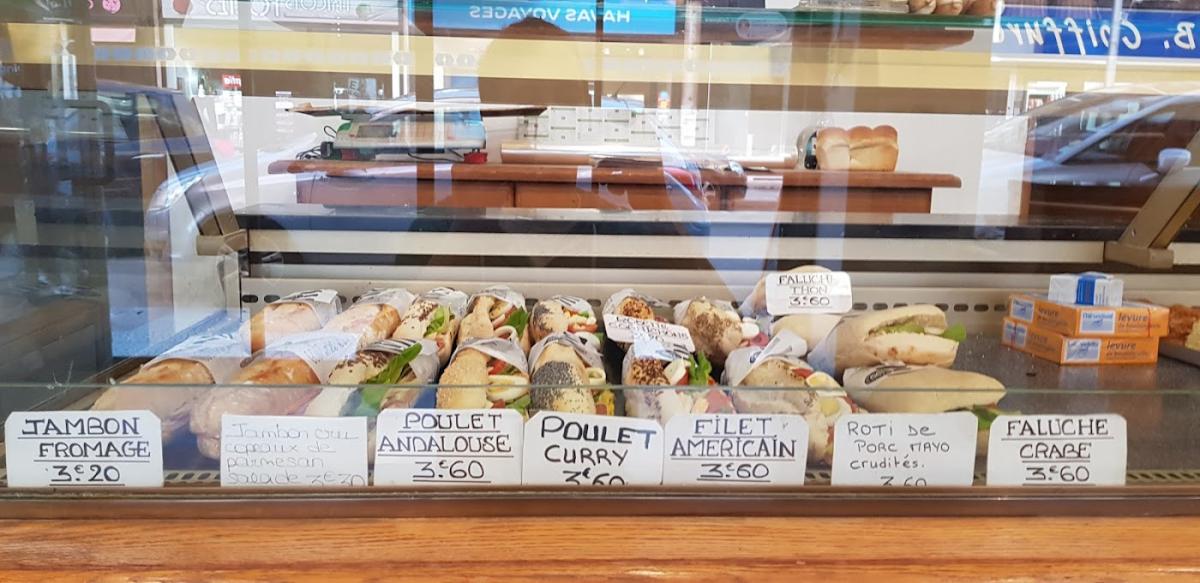 HAVAS VOYAGES
B. Coiffure
FALUCHE
THON
3€60
levure
levure
JAMBON
FROMAGE
3€20
Jambon cru
copeaux de
parmesan
salade 3€30
POULET
ANDALOUSE
3€60
POULET
CURRY
3€60
FILET
AMERICAIN
3€60
ROTI DE
PORC MAYO
crudités.
3.60
FALUCHE
CRABE
3€60